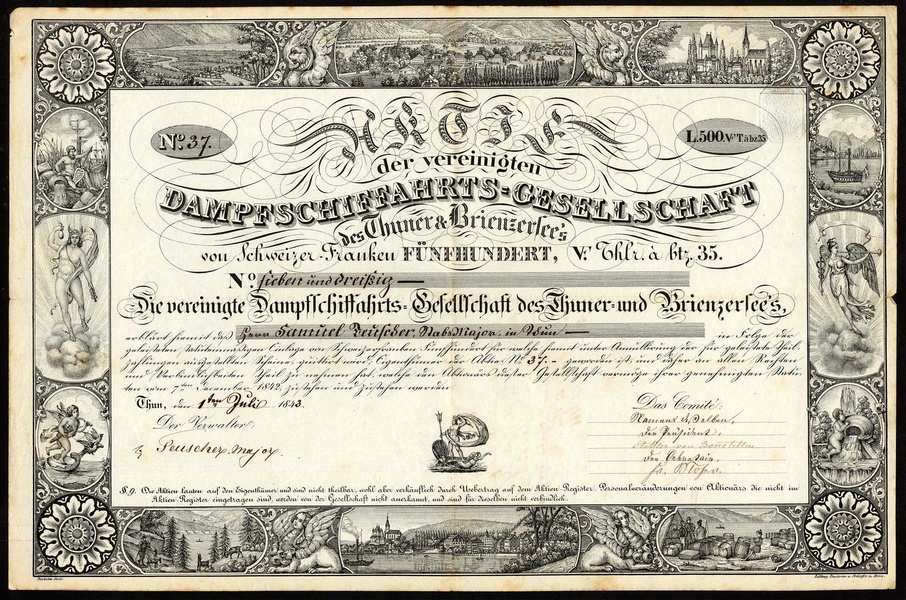 No. 37.
L.500. V. T à bz 35
AKTIE
der vereinigten
DAMPFSCHIFFAHRTS-GESELLSCHAFT
des Thuner & Brienzersee's
von Schweizer-Franken FÜNFHUNDERT, V. Thlr. à btz. 35.
No. sieben und dreißig
Die vereinigte Dampfschiffahrts-Gesellschaft des Thuner- und Brienzersee's,
erklärt hiemit daß Herr Samuel Teuscher, Stabs Major, in Thun in Folge der
geleisteten Einlage von Schweizerfranken Fünfhundert für welche hiemit unter der für geleistete Theil
zahlungen ausgestellten Scheine quittirt wird Eigenthümer der Aktie No. 37. geworden ist, und daher an allen Rechten
und Verbindlichkeiten Theil zu nehmen hat, welche den Aktionärs dieser Gesellschaft vermöge ihrer genehmigten Statu-
ten vom 7ten December 1842, zustehen und zustehen werden.
Thun, den 1ten Juli 1843.
Der Verwalter
Teuscher, major.
Das Comité,
Namens desselben,
der Präsident,
der Sekretair,
§. 9. Die Aktien lauten auf den Eigenthümer und sind nicht theilbar, wohl aber verkäuflich durch Uebertrag auf dem Aktien-Register. Personalveränderungen von Aktionärs die nicht im
Aktien-Register eingetragen sind, werden von der Gesellschaft nicht anerkannt, und sind für dieselben nicht verbindlich.